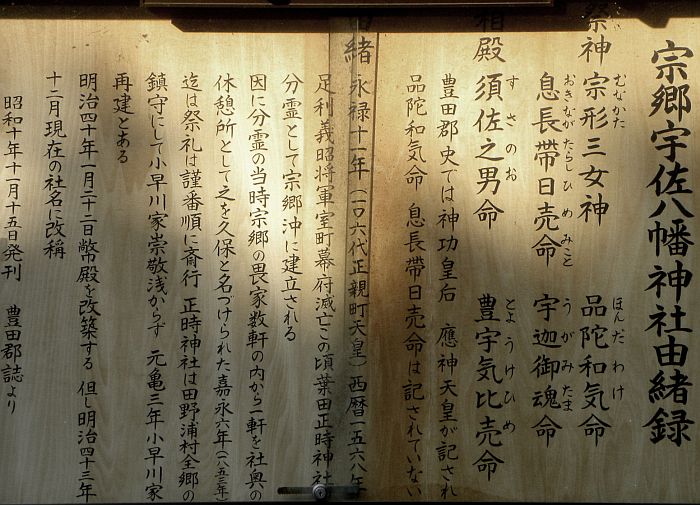 宗郷宇佐八幡神社由緒録
祭神 宗形三女神 品陀和気命
むなかた ほんだわけ
息長帯日売命 宇迦御魂命
おきながたらしひめみこと うがみたま
相殿 須佐之男命 豊宇気比売命
すさのお とようけひめ
豊田郡史では神功皇后 應神天皇が記され
品陀和気命 息長帯日売命は記されていない
由緒 永禄十一年(一〇六代正親町天皇)西暦一五六八年
足利義昭将軍室町幕府滅亡この頃葉田正時神社
分霊として宗郷沖に建立される
因に分霊の当時宗郷の畏家数軒の内から一軒を社輿の
休憩所として之を久保と名づけられた嘉永六年(一八五三年)
迄は祭礼は謹番順に斎行 正時神社は田野浦村全郷の
鎮守にして小早川家崇敬浅からず 元亀三年小早川家
再建とある
明治四十年一月二十二日幣殿を改築する 但し明治四十三年
十二月現在の社名に改稱
昭和十年十一月十五日発刊 豊田郡誌より